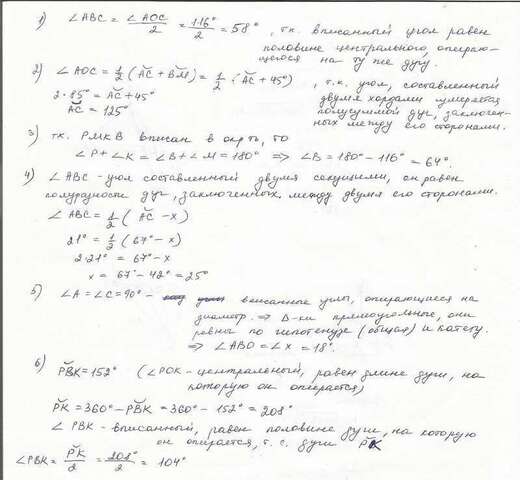 1) ∠ABC = ∠AOC/2 = 116°/2 = 58°, т.к. вписанный угол равен
половине центрального, опираю-
щегося на ту же дугу.
2) ∠AOC = 1/2 (ĂC + B̆M) = 1/2 · (ĂC + 45°)
, т.к. угол, составленный
2·85° = ĂC + 45°
двумя хордами измеряется
ĂC = 125°
полусуммой дуг, заключен-
ных между его сторонами.
3) т.к. PMKB вписан в окр-ть, то
∠P + ∠K = ∠B + ∠M = 180° ⇒ ∠B = 180° - 116° = 64°.
4) ∠ABC - угол составленный двумя секущими, он равен
полуразности дуг, заключенных между двумя его сторонами.
∠ABC = 1/2 (ĂC - x)
21° = 1/2 (67° - x)
2·21° = 67° - x
x = 67° - 42° = 25°
5) ∠A = ∠C = 90° - вписанные углы, опирающиеся на
диаметр. ⇒ Δ-ки прямоугольные, они
равны по гипотенузе (общая) и катету.
⇒ ∠ABO = ∠x = 18°.
6) PB̆K = 152° (∠POK - центральный, равен длине дуги, на
которую он опирается)
P̆K = 360° - PB̆K = 360° - 152° = 208°
∠PBK - вписанный, равен половине дуги, на которую
он опирается, т.е. дуги P̆K
∠PBK = P̆K/2 = 208°/2 = 104°